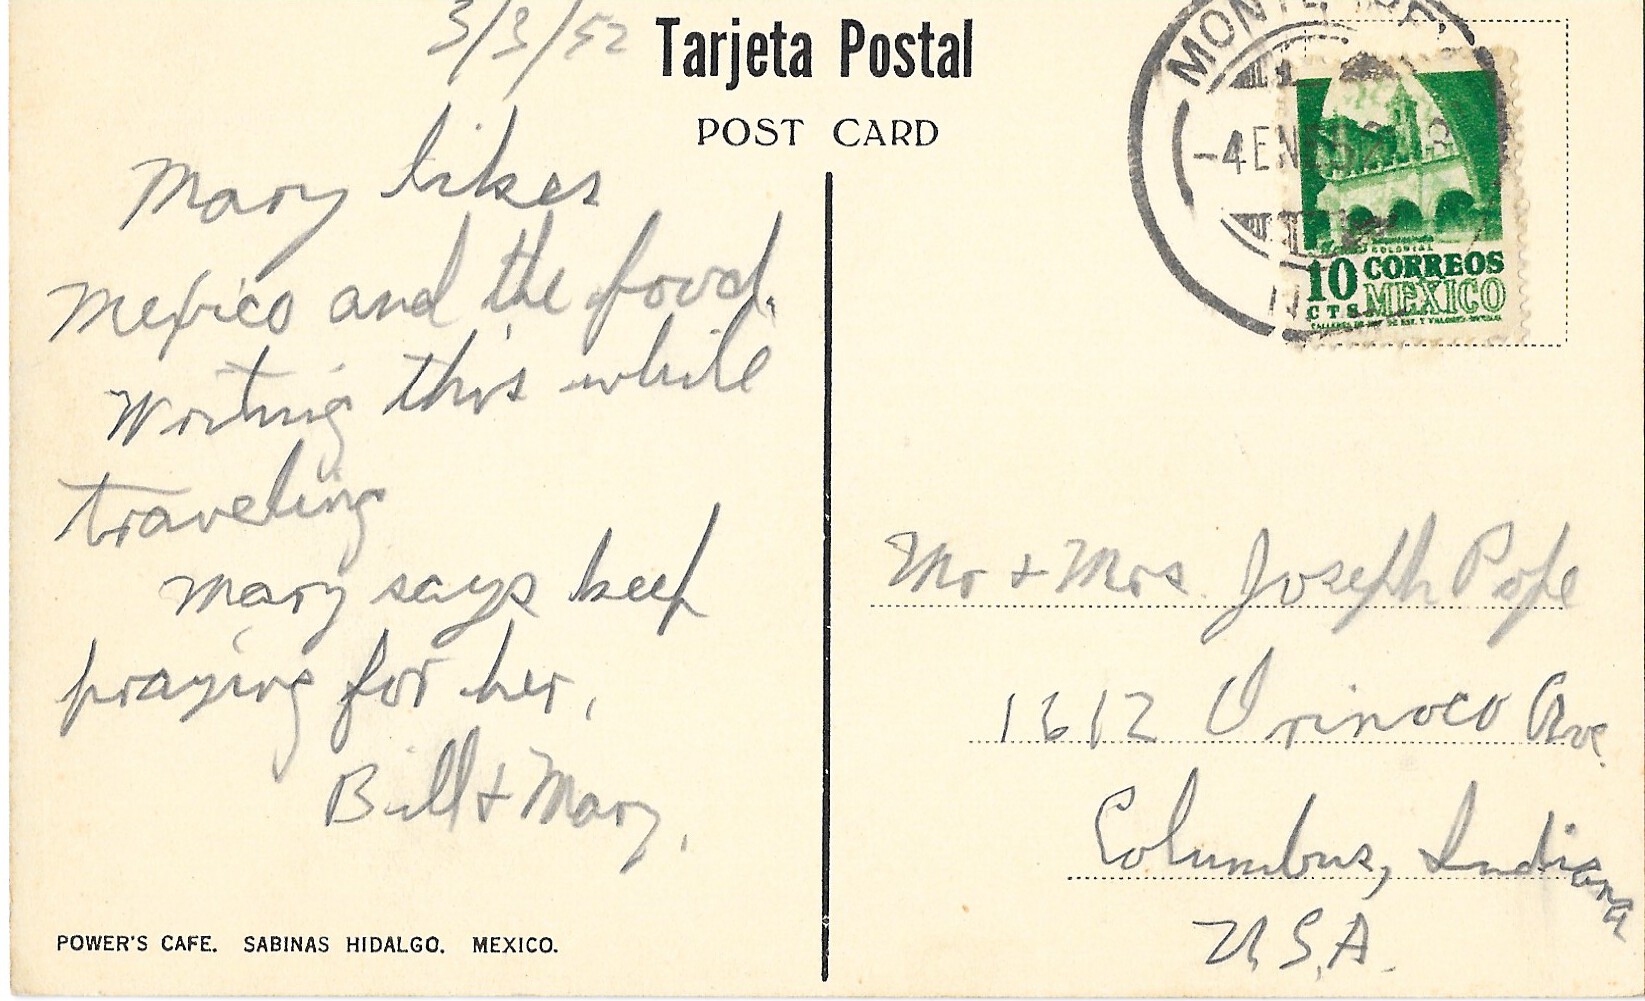 3/3/52
Tarjeta Postal
POST CARD
Mary likes
Mexico and the food.
Writing this while
traveling
Mary says keep
praying for her,
Bill + Mary,
POWER'S CAFE. SABINAS HIDALGO. MEXICO.
-4 ENE 52
COLONIAL
10 CORREOS
CTS MEXICO
Mr + Mrs. Joseph Pope
1612 Orinoco Ave.
Columbus, Indiana
U.S.A.